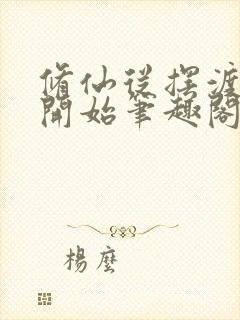 脩仙從擺渡
開始筆趣閣
楊麼